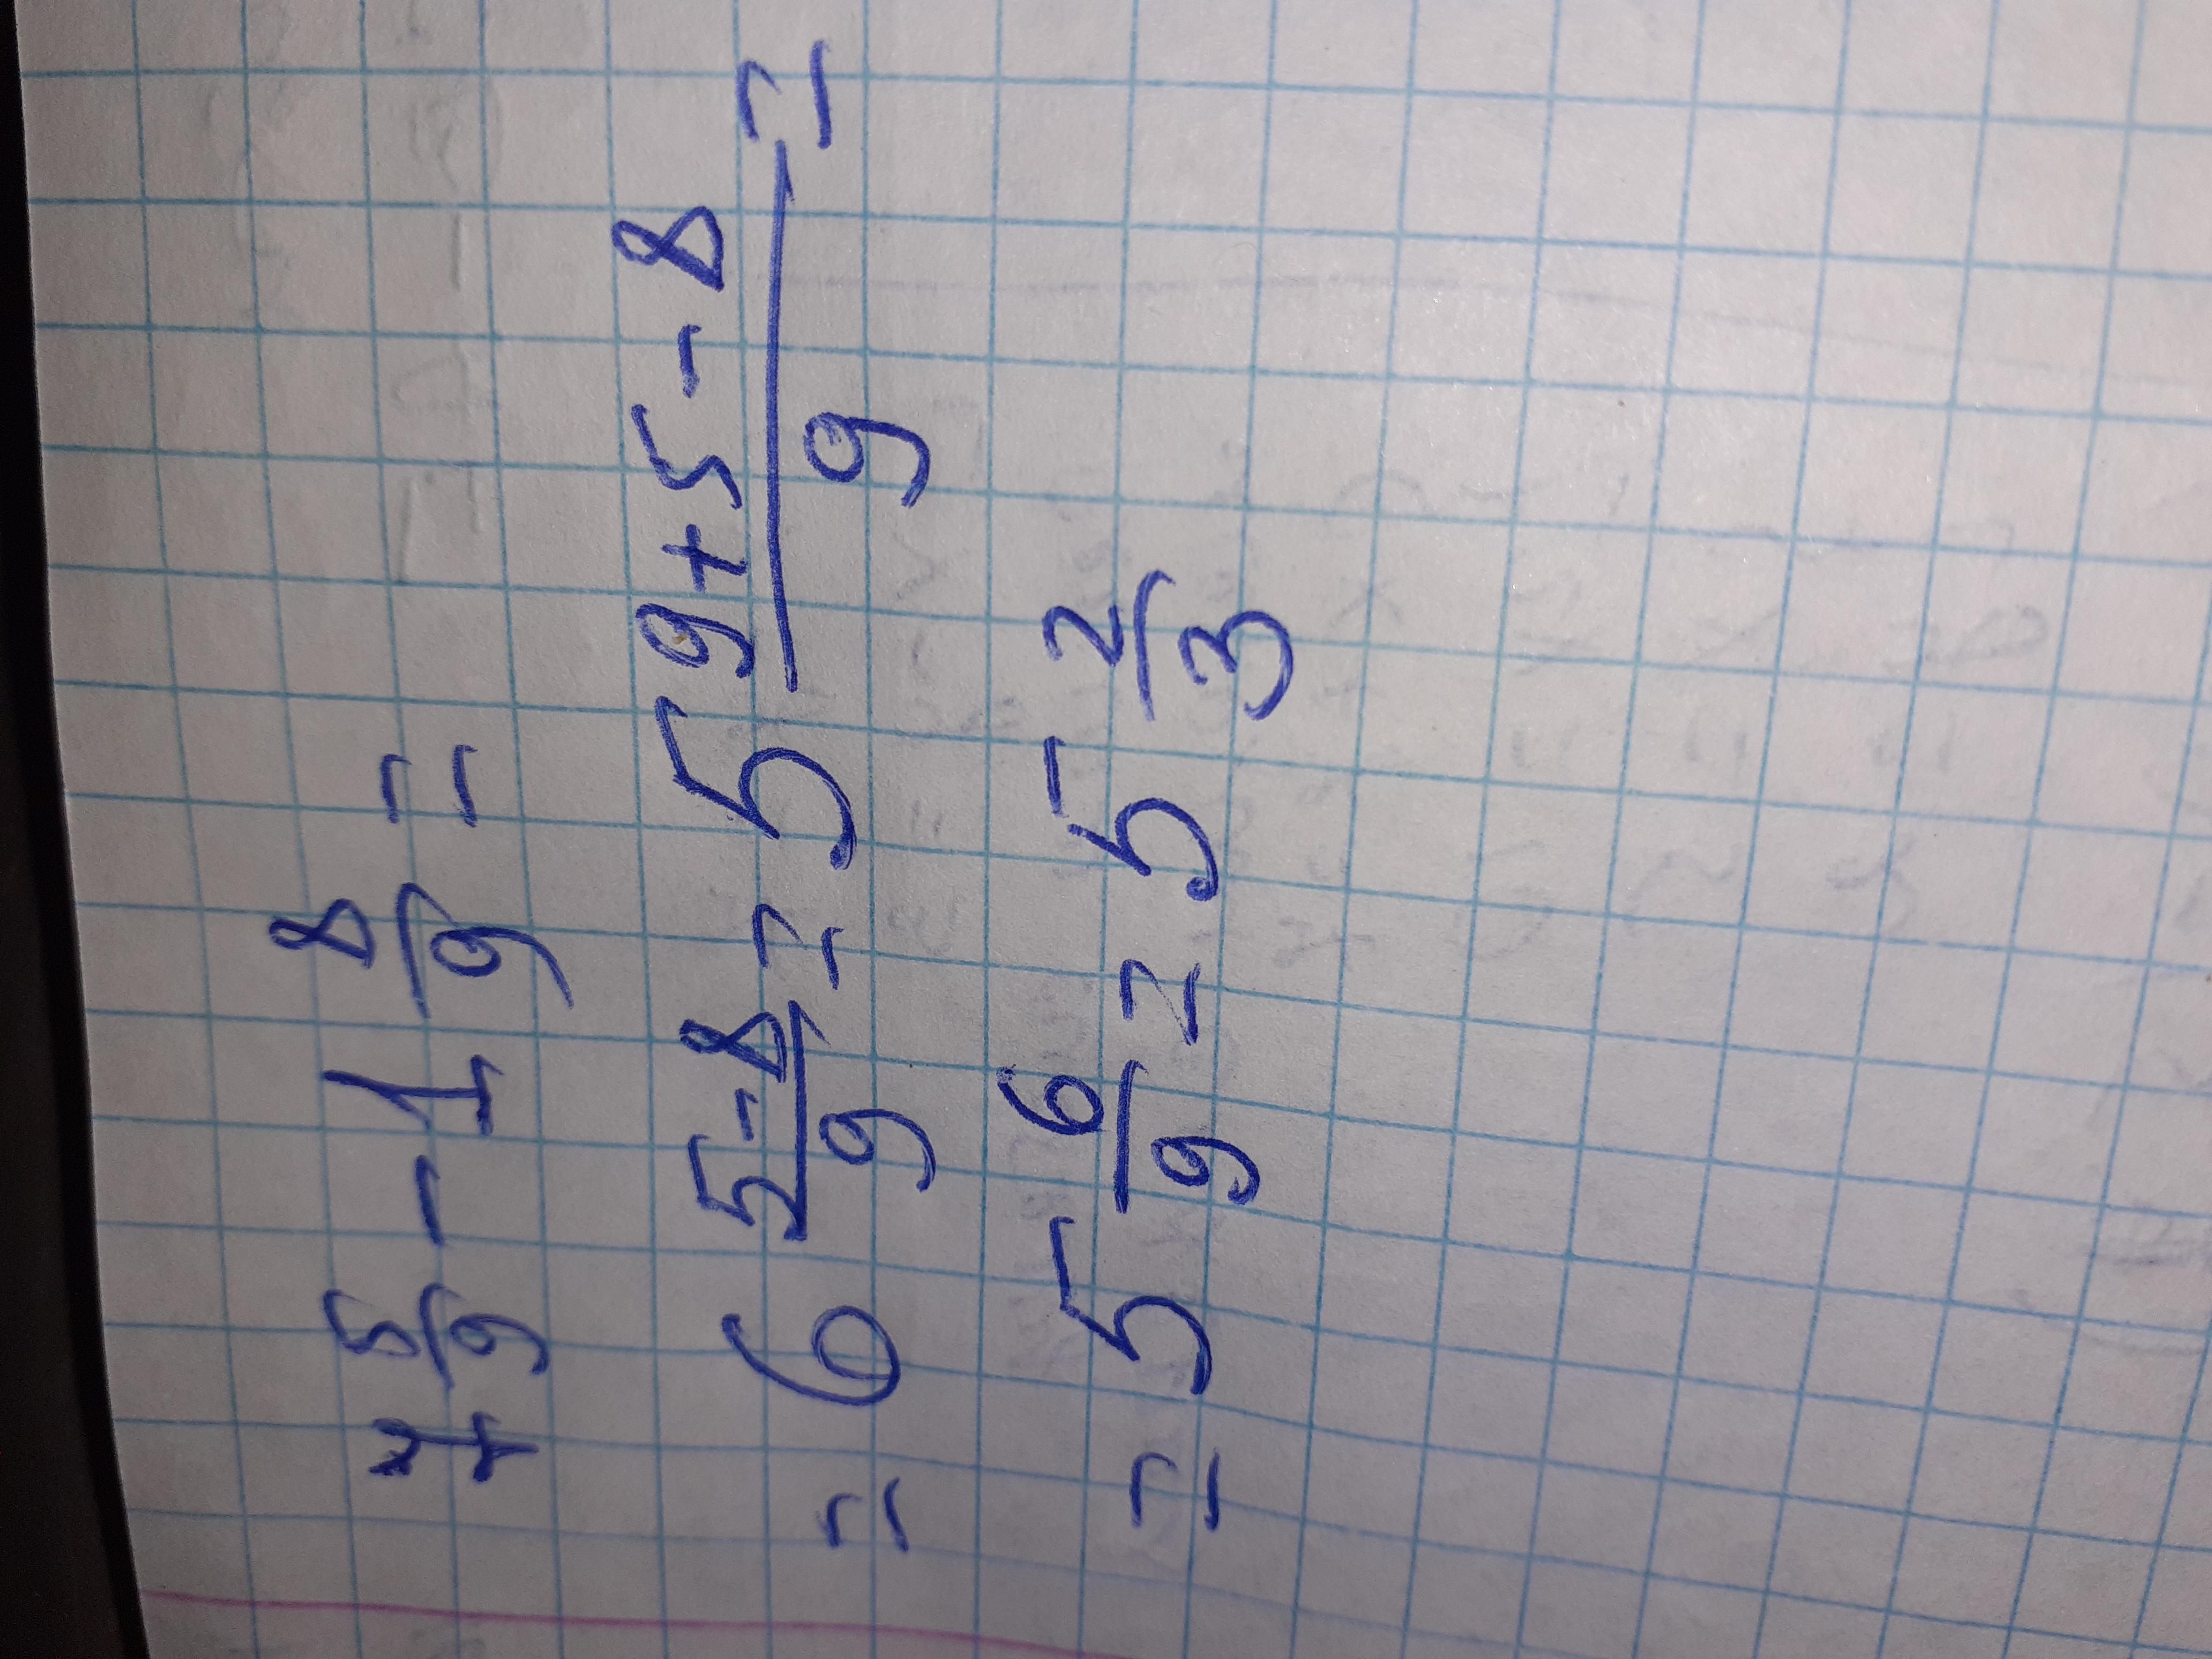 7 5/9 - 1 8/9 =
= 6 5-8/9 = 5 9+5-8/9 =
= 5 6/9 = 5 2/3